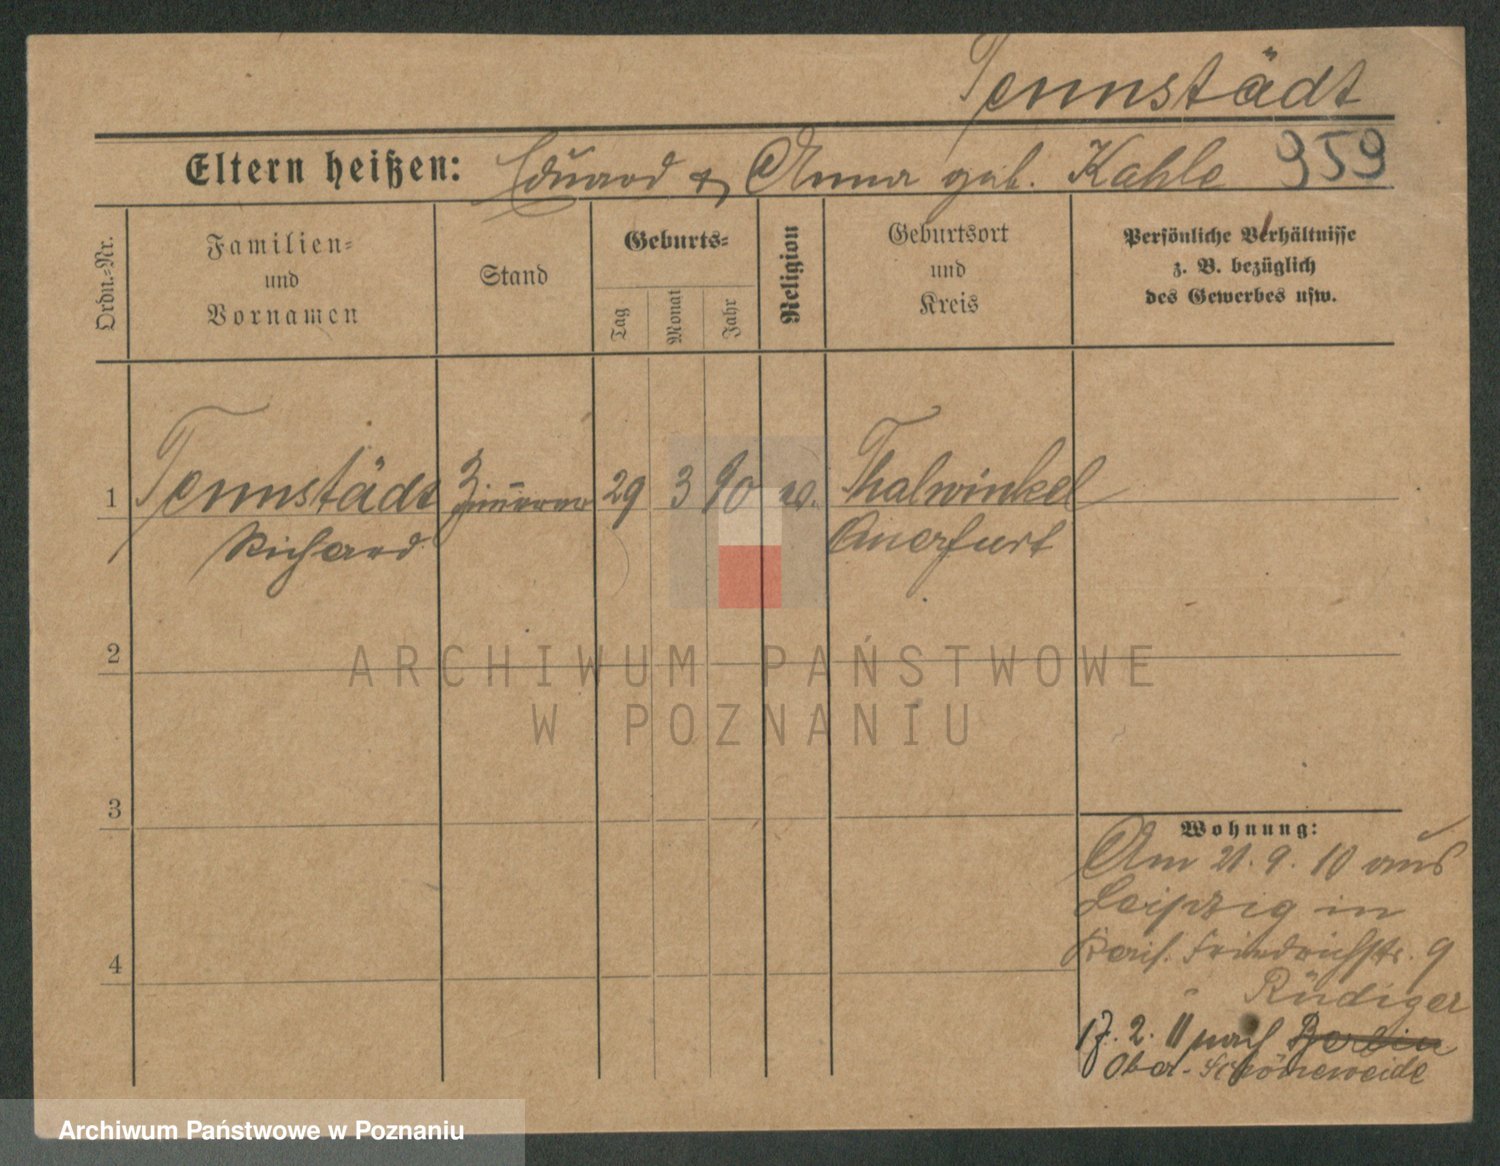 Tennstädt
Eltern heißen: Eduard & Anna geb. Kahle 959
Ordn.-Nr.
Familien-
und
Vornamen
Stand
Geburts-
Tag
Monat
Jahr
Religion
Geburtsort
und
Kreis
Persönliche Verhältnisse
z. B. bezüglich
des Gewerbes usw.
1 Tennstädt 29 3 90 Thalwinkel
Richard Querfurt
2
ARCHIWUM PAŃSTWOWE
W POZNANIU
3
Wohnung:
Am 21. 9. 10 aus
Leipzig in
Friedrichstr. 9
4
Rüdiger
17. 2. 11 nach Berlin
Ober-Schöneweide
Archiwum Państwowe w Poznaniu